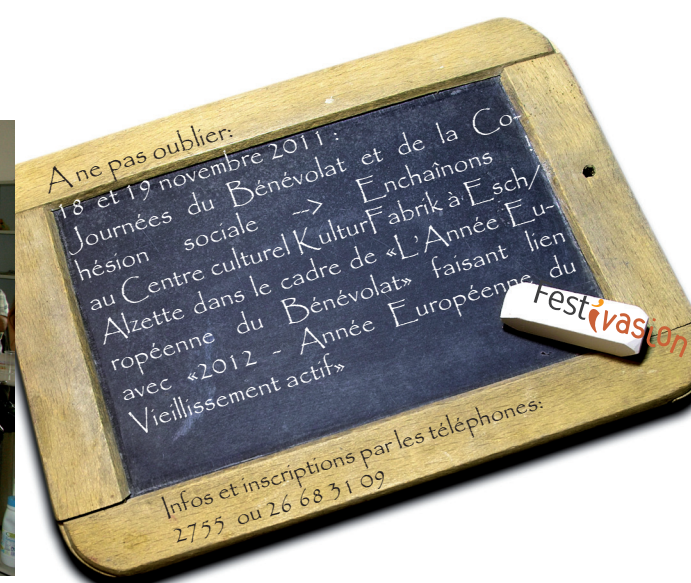 A ne pas oublier:
18 et 19 novembre 2011 :
Journées du Bénévolat et de la Co-
hésion sociale --> Enchaînons !
au Centre culturel KulturFabrik à Esch/
Alzette dans le cadre de «L'Année Eu-
ropéenne du Bénévolat» faisant lien
avec «2012 - Année Européenne du
Vieillissement actif»
Festivasion
Infos et inscriptions par les téléphones:
2755 ou 26 68 31 09